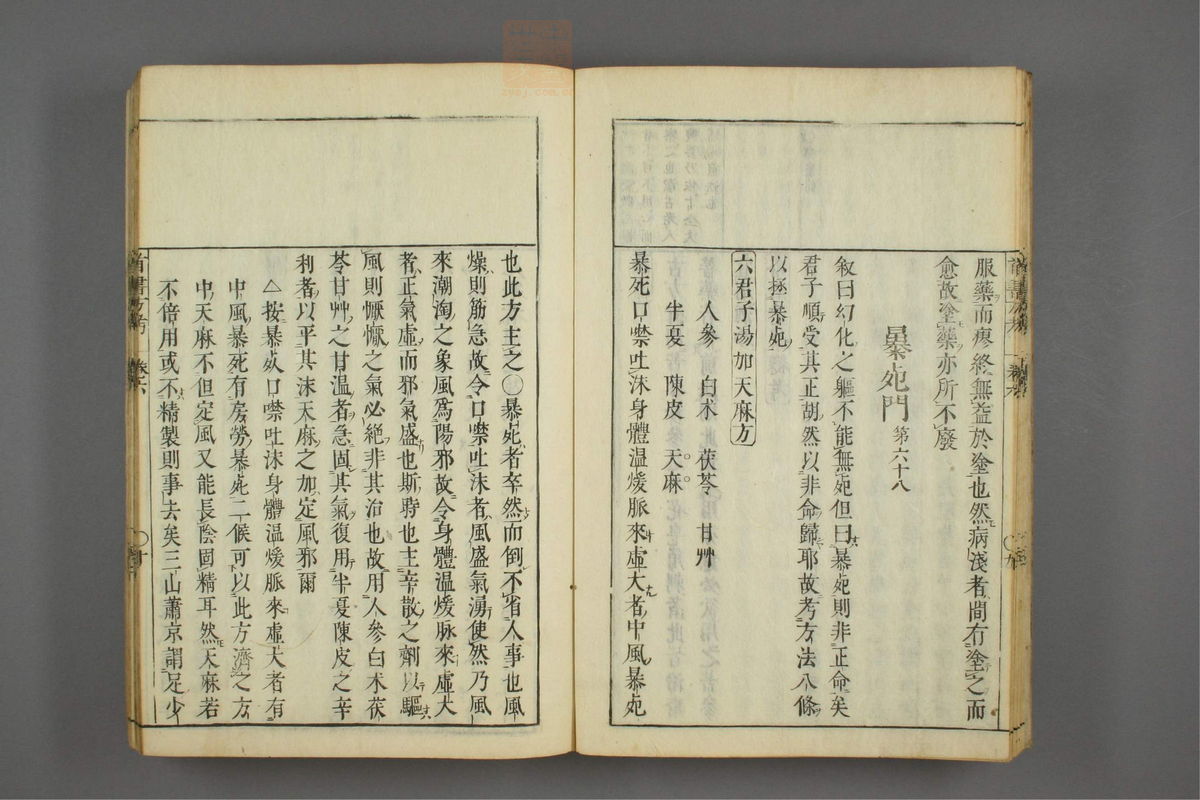 服藥而疼終無益於塗也然病淺者間有塗之而
愈故塗藥亦所不廢
暴死門第六十八
叙曰幻化之軀不能無死但曰暴死則非正命矣
君子順受其正胡然以非命歸耶故考方法八條
以拯暴死
六君子湯加天麻方
人參 白朮 茯苓 甘艸
半夏 陳皮 天麻
暴死口噤吐沫身體溫煖脈來虛大者中風暴死
也此方主之○暴死者卒然而倒不省人事也風
燥則筋急故令口噤吐沫者風盛氣湧使然乃風
來潮洶之象風爲陽邪故令身體溫煖脉來虛大
者正氣虛而邪氣盛也斯時也主辛散之劑以驅
風則憮憮之氣必絶非其治也故用人參白朮茯
苓甘艸之甘溫者急固其氣復用半夏陳皮之辛
利者以平其沫天麻之加定風邪爾
△按暴死口噤吐沫身體溫煖脈來虛大者有
中風暴死有房勞暴死二候可以此方濟之方
中天麻不但定風又能長陰固精耳然天麻若
不倍用或不精製則事去矣三山蕭京謂足少
醫書方考 卷六 十